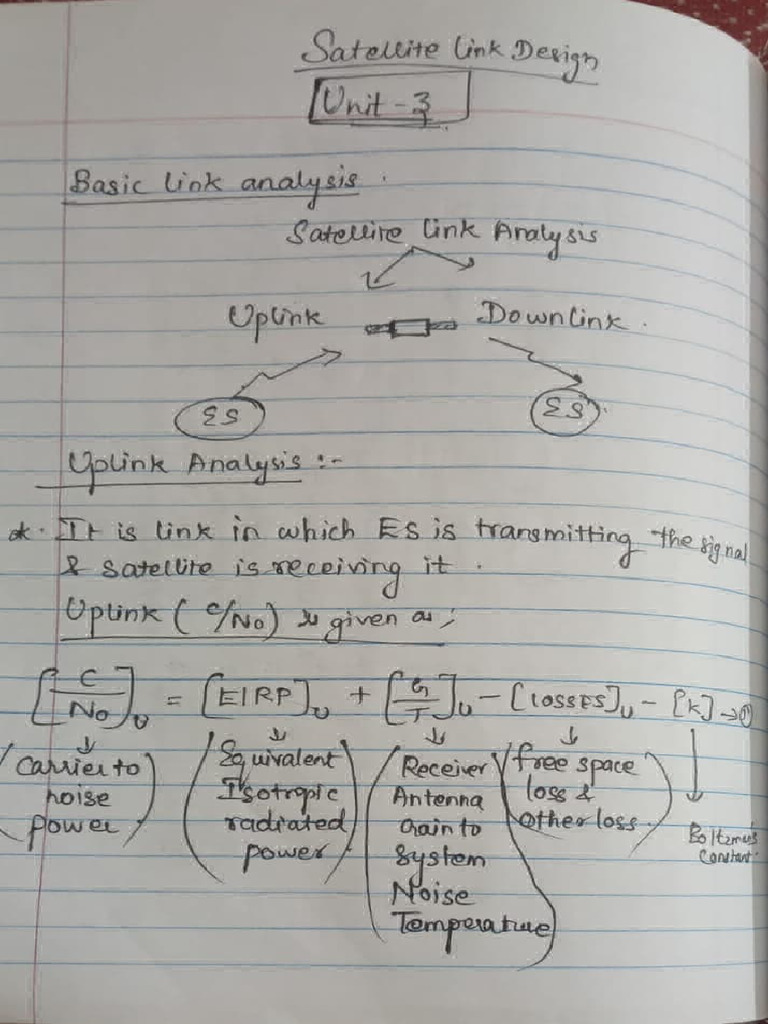 Satellite Link Design
Unit - 3
Basic link analysis.
Satellite link Analysis
Uplink Downlink.
ES ES
Uplink Analysis :-
*. It is link in which ES is transmitting the signal
& satellite is receiving it.
Uplink (C/No) is given as;
[C/No]U = [EIRP]U + [G/T]U - [LOSSES]U - [K] → ①
(Carrier to noise power)
(Equivalent Isotropic radiated power)
(Receiver Antenna Gain to System Noise Temperature)
(free space loss & other loss.)
Boltzman's Constant.